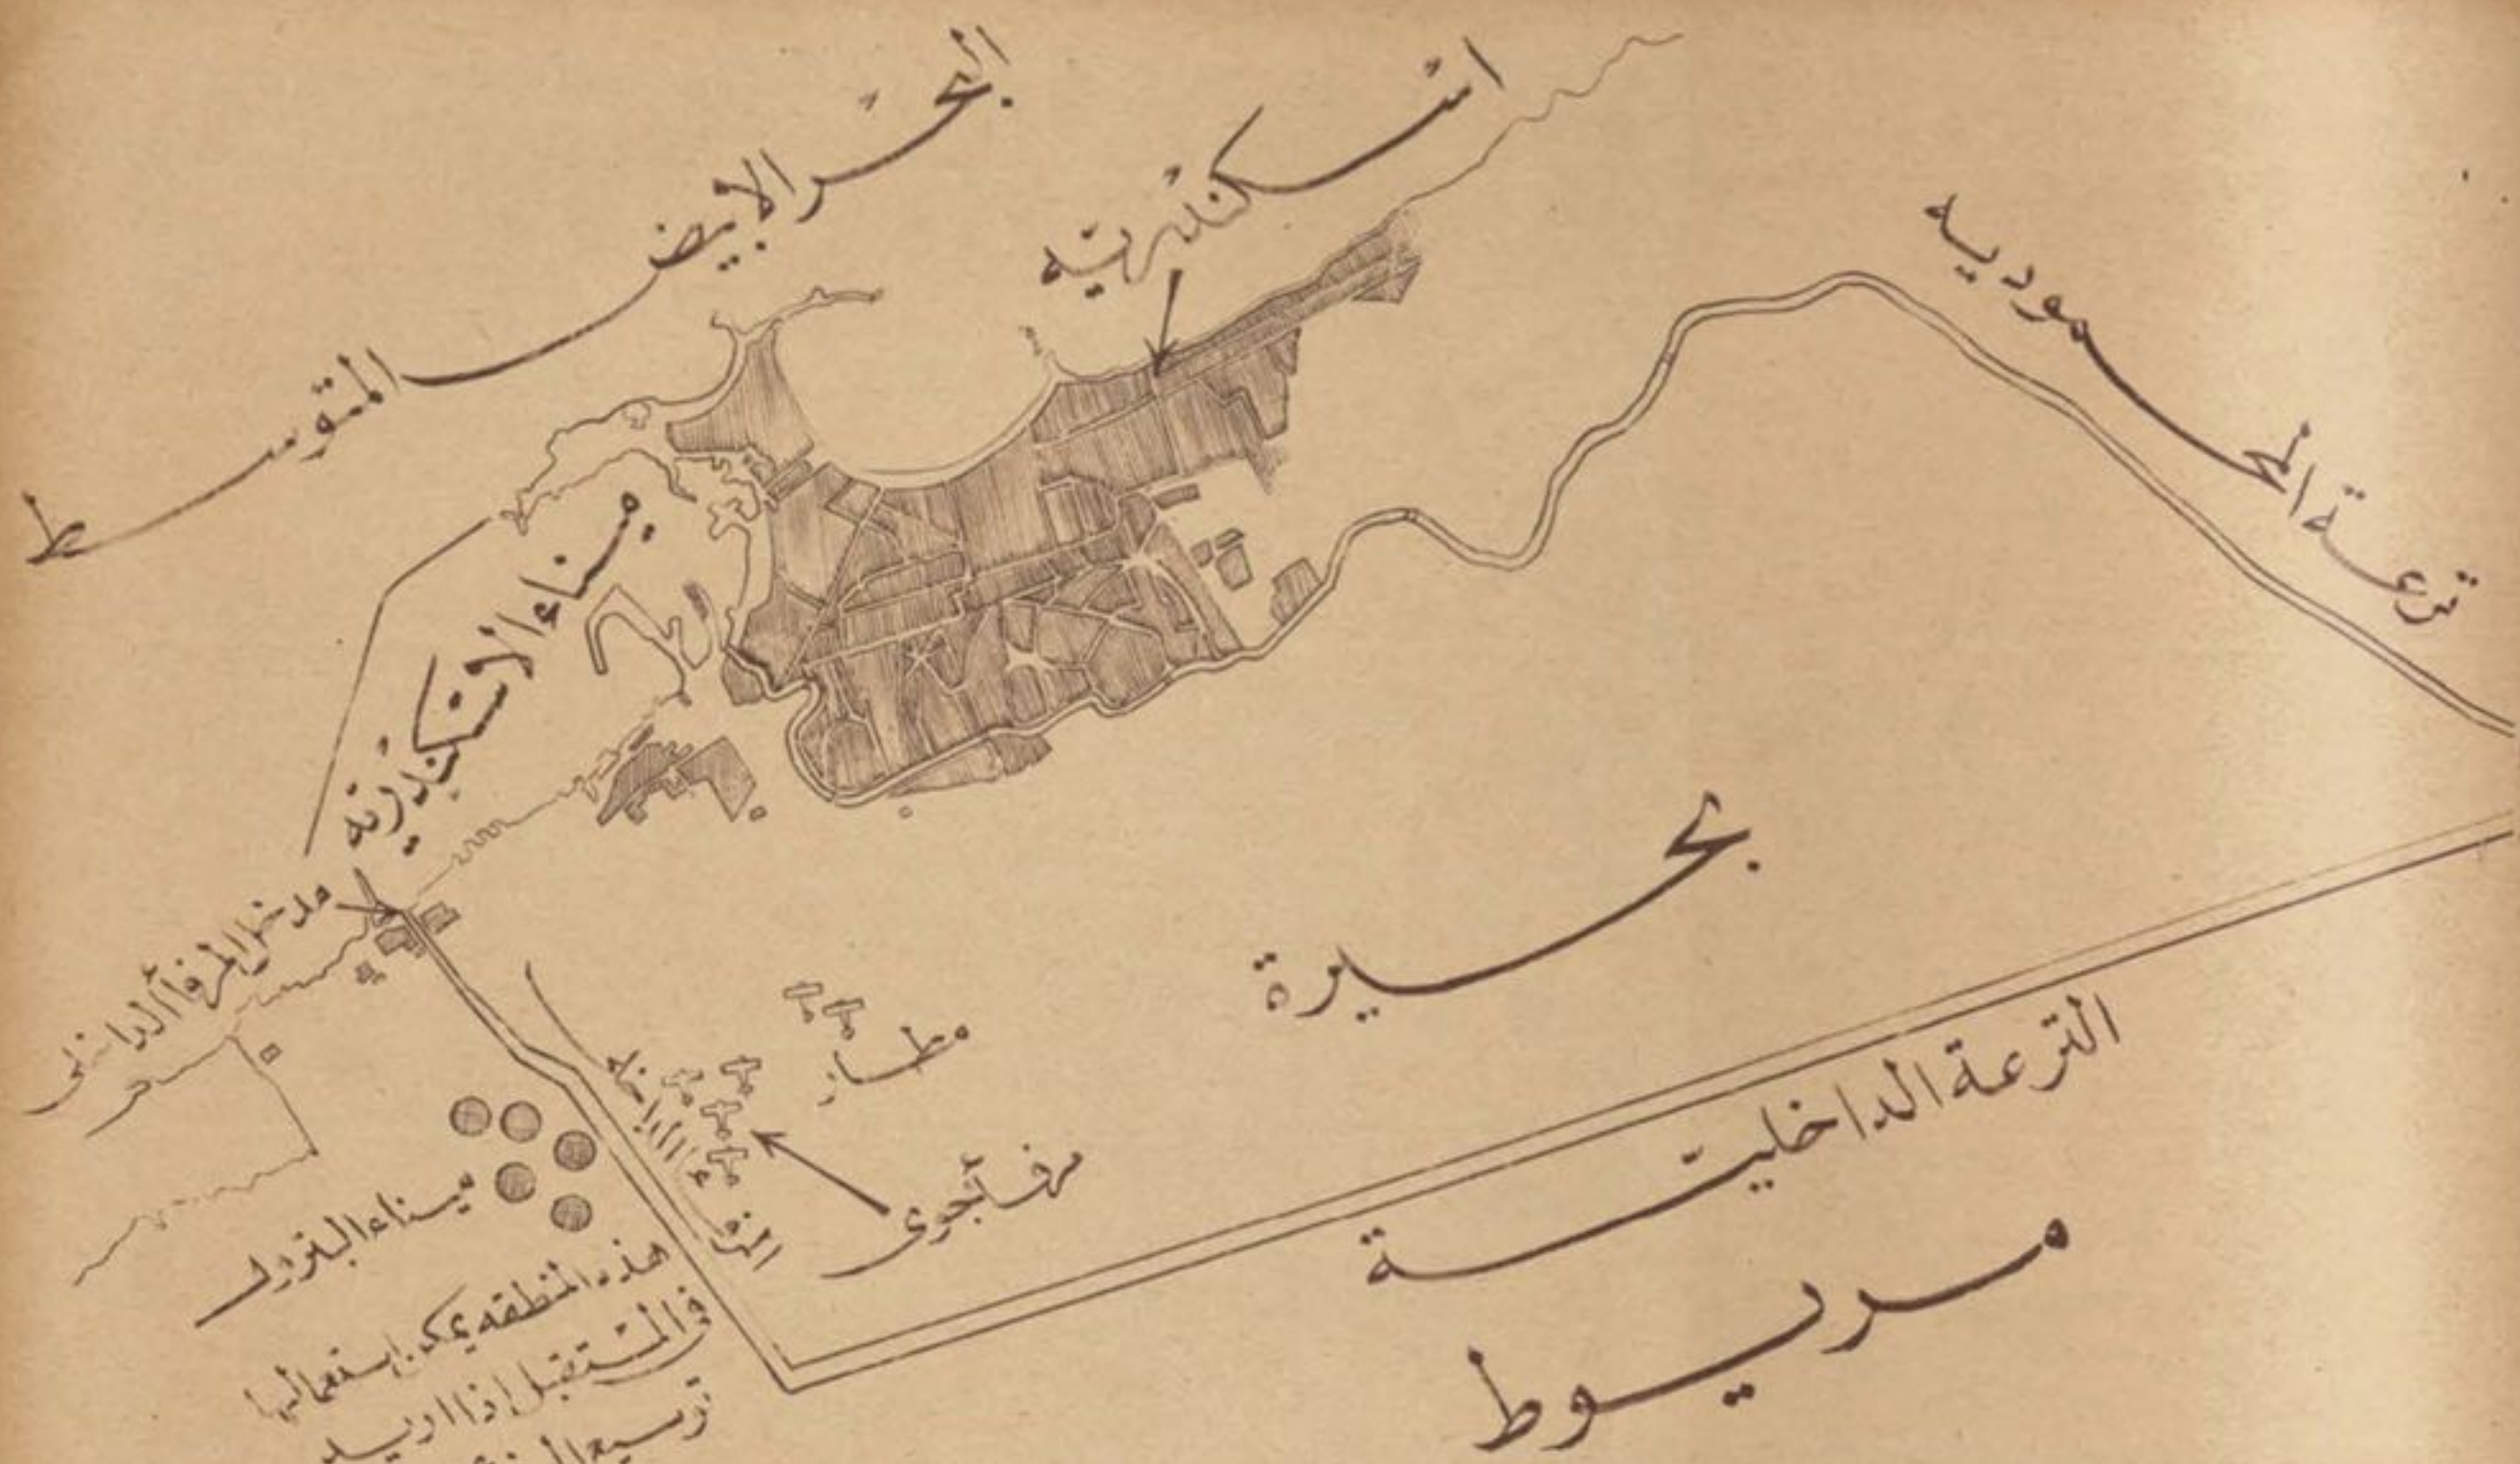 البحر الابيض المتوسط
اسكندرية
ترعة المحموديه
ميناء الاسكندرية
مدخل المرفأ الداخلى
بحيرة
مطار
مرفأ جوى
المرفأ الداخلى
الترعة الداخلية
مريوط
ميناء البترول
هذه المنطقه يمكن استعمالها
فى المستقبل إذا اريد
توسيع